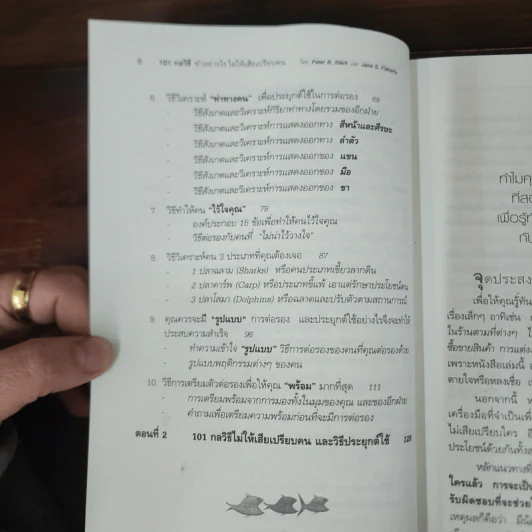 8 101 กลวิธี ทำอย่างไร ไม่ให้เสียเปรียบคน โดย Peter B. Stark และ Jane S. Flaherty
6. วิธีวิเคราะห์ "ท่าทางคน" เพื่อประยุกต์ใช้ในการต่อรอง 69
- วิธีสังเกตและวิเคราะห์กิริยาท่าทางโดยรวมของอีกฝ่าย
- วิธีสังเกตและวิเคราะห์การแสดงออกทาง สีหน้าและศีรษะ
- วิธีสังเกตและวิเคราะห์การแสดงออกทาง ลำตัว
- วิธีสังเกตและวิเคราะห์การแสดงออกของ แขน
- วิธีสังเกตและวิเคราะห์การแสดงออกของ มือ
- วิธีสังเกตและวิเคราะห์การแสดงออกของ ขา
7. วิธีทำให้คน "ไว้ใจคุณ" 79
- องค์ประกอบ 15 ข้อเพื่อทำให้คนไว้ใจคุณ
- วิธีต่อรองกับคนที่ "ไม่น่าไว้วางใจ"
8. วิธีวิเคราะห์คน 3 ประเภทที่คุณต้องเจอ 87
- 1 ปลาฉลาม (Sharks) หรือคนประเภทเขี้ยวลากดิน
- 2 ปลาคาร์พ (Carp) หรือประเภทขี้แพ้ เอาแต่รักษาประโยชน์ตน
- 3 ปลาโลมา (Dolphins) หรือฉลาดและปรับตัวตามสถานการณ์
9. คุณควรจะมี "รูปแบบ" การต่อรอง และประยุกต์ใช้อย่างไรจึงจะทำให้
ประสบความสำเร็จ 96
- ทำความเข้าใจ "รูปแบบ" วิธีการต่อรองของคนที่คุณต่อรองด้วย
- รูปแบบพฤติกรรมต่างๆ ของคน
10. วิธีการเตรียมตัวต่อรองเพื่อให้คุณ "พร้อม" มากที่สุด 111
- การเตรียมพร้อมจากการมองทั้งในมุมของคุณ และของอีกฝ่าย
- คำถามเพื่อเตรียมความพร้อมก่อนที่จะมีการต่อรอง
ตอนที่ 2 101 กลวิธีไม่ให้เสียเปรียบคน และวิธีประยุกต์ใช้ 129
ทำไมคุ
ที่สอ
เพื่อรู้ทั
กัน
จุดประสง
เพื่อให้คุณรู้ทัน
เรื่องเล็กๆ อาทิเช่น
ในร้านตามที่ต่างๆ
ซื้อขายสินค้า การแต่งง
เพราะหนังสือเล่มนี้
ตายใจหรือหลงเชื่อ
นอกจากนี้
เครื่องมือที่จำเป็นเพื่
ไม่เสียเปรียบใคร
ประโยชน์ด้วยกันทั้งส
หลักแนวทางที่
ใครแล้ว การจะเป็น
รับผิดชอบที่จะช่วย
เหตุผลก็คือว่า